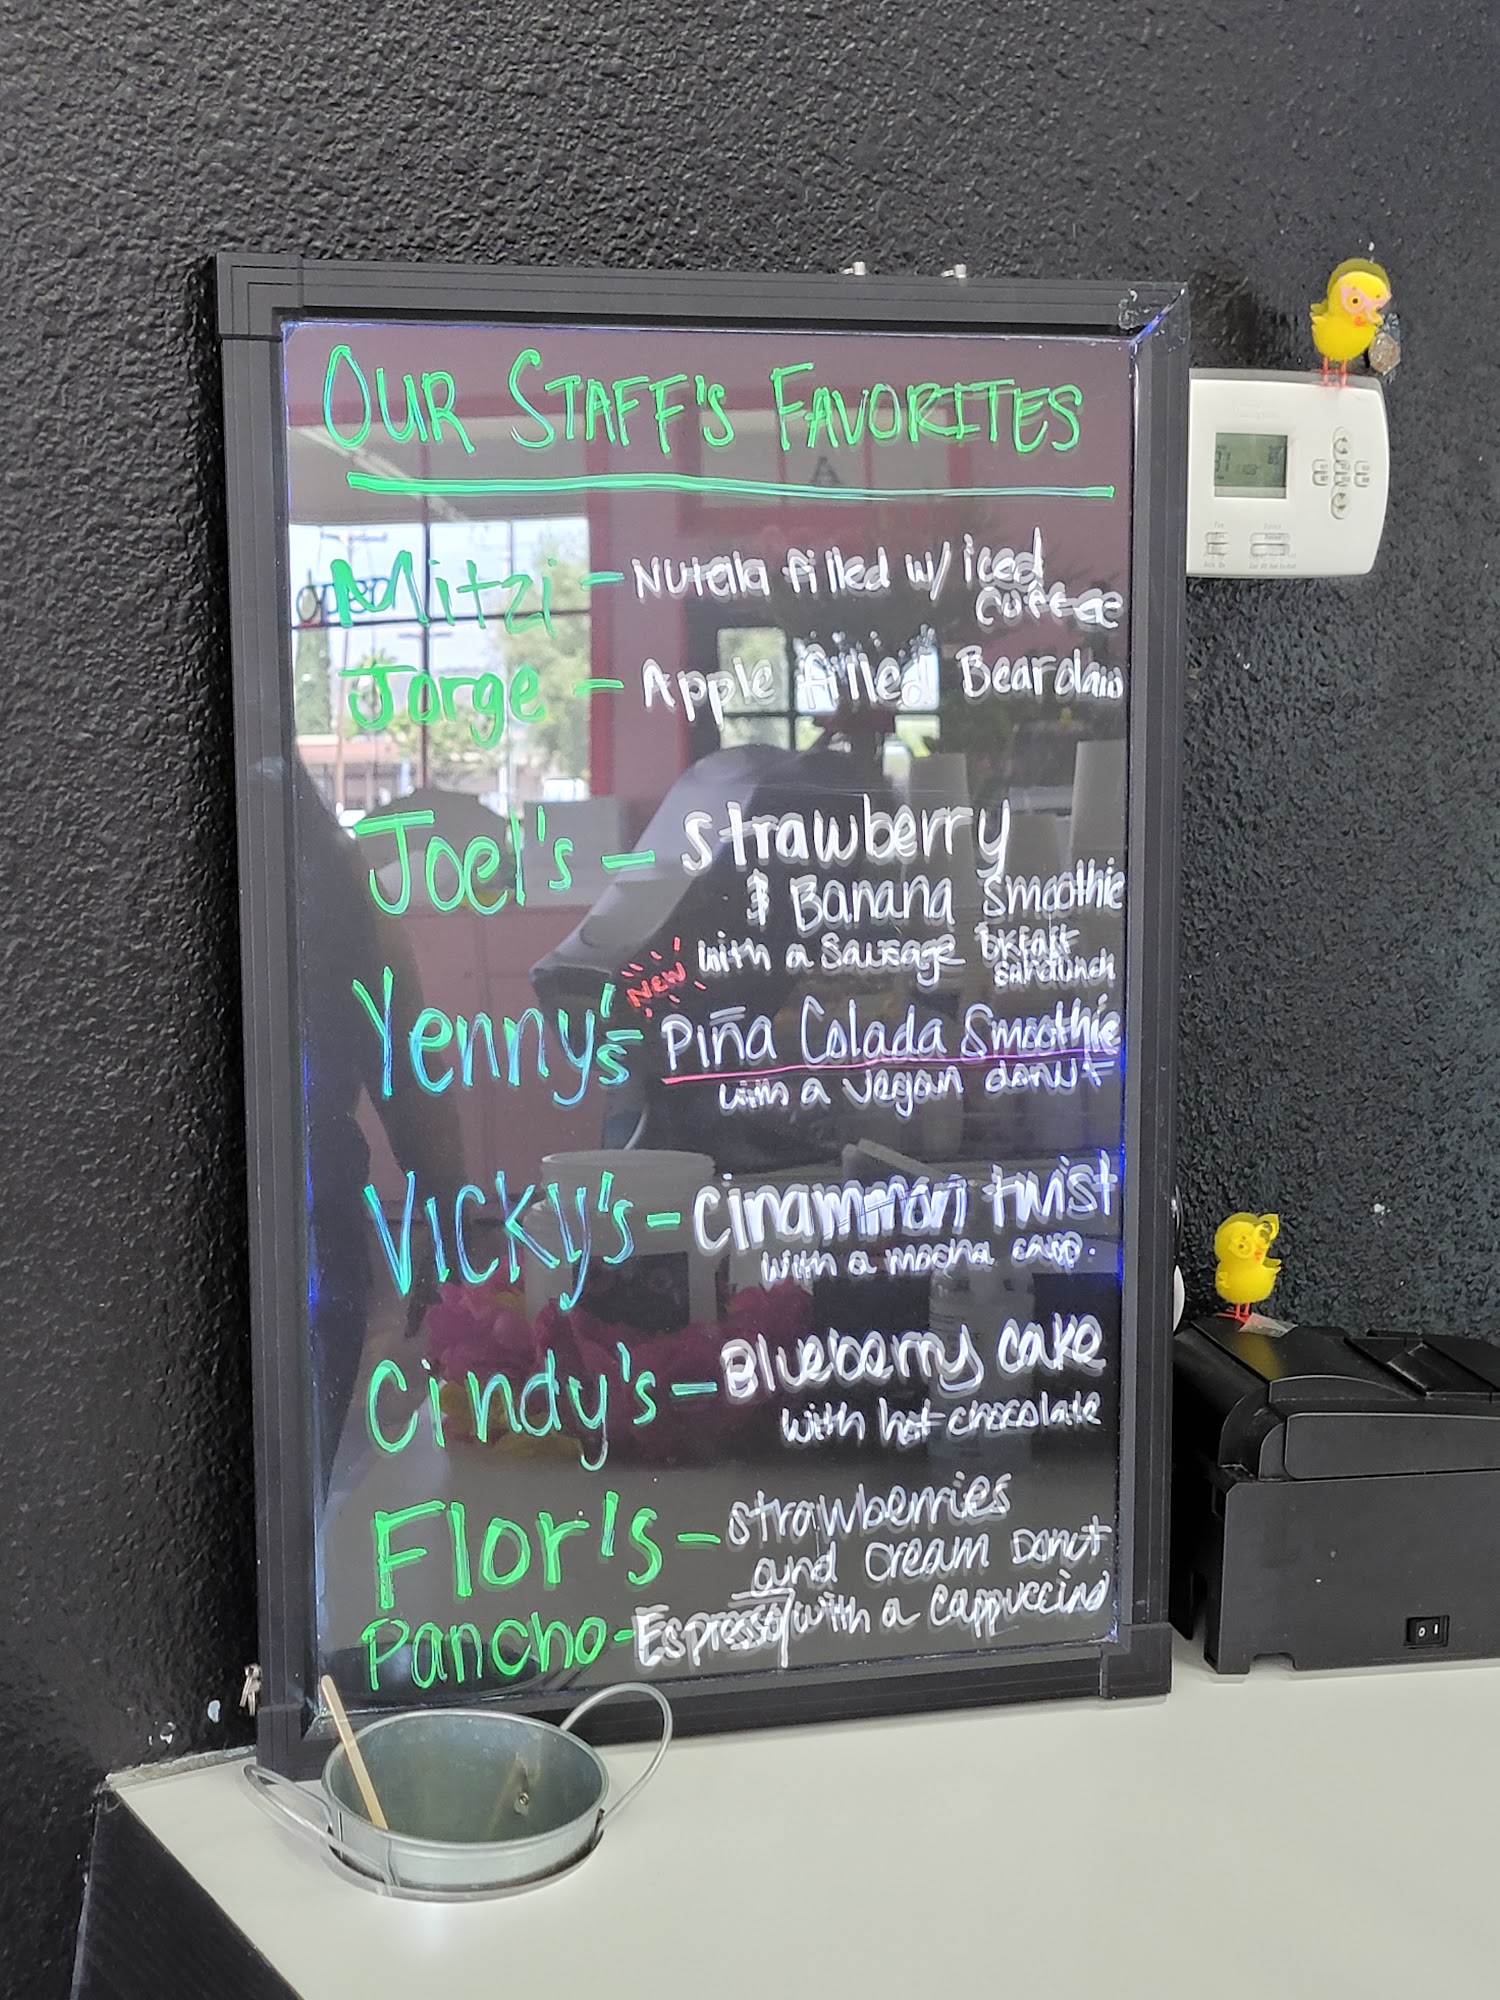 OUR STAFF'S FAVORITES
Mitzi - Nutella filled w/ iced
coffee
Jorge - Apple filled Bearclaw
Joel's - strawberry
& Banana smoothie
with a sausage brkfast
sandwich
Yenny's - NEW Piña Colada Smoothie
with a vegan donut
Vicky's - Cinammon twist
with a mocha capp.
Cindy's - Blueberry cake
with hot chocolate
Flor's - strawberries
and cream Donut
Pancho - Espresso/with a cappuccino
open
A